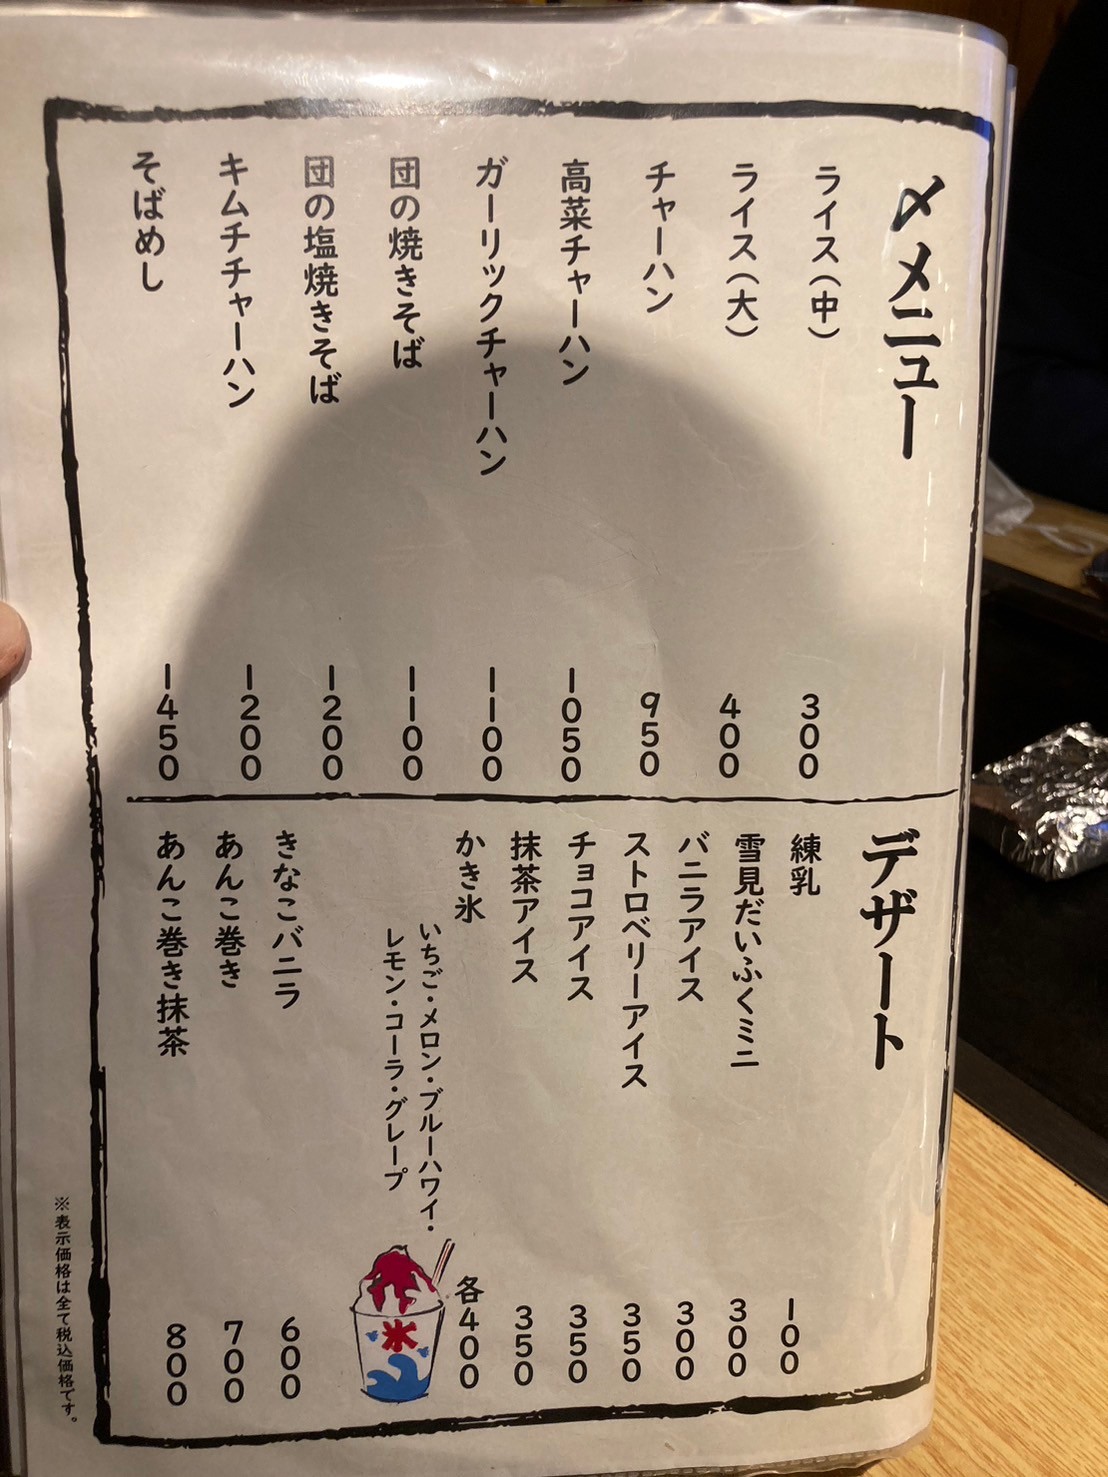 〆メニュー
ライス(中) 300
ライス(大) 400
チャーハン 950
高菜チャーハン 1050
ガーリックチャーハン 1100
団の焼きそば 1100
団の塩焼きそば 1200
キムチチャーハン 1200
そばめし 1450
デザート
練乳 100
雪見だいふくミニ 300
バニラアイス 300
ストロベリーアイス 350
チョコアイス 350
抹茶アイス 350
かき氷 各400
いちご・メロン・ブルーハワイ・
レモン・コーラ・グレープ
氷
きなこバニラ 600
あんこ巻き 700
あんこ巻き抹茶 800
※表示価格は全て税込価格です。